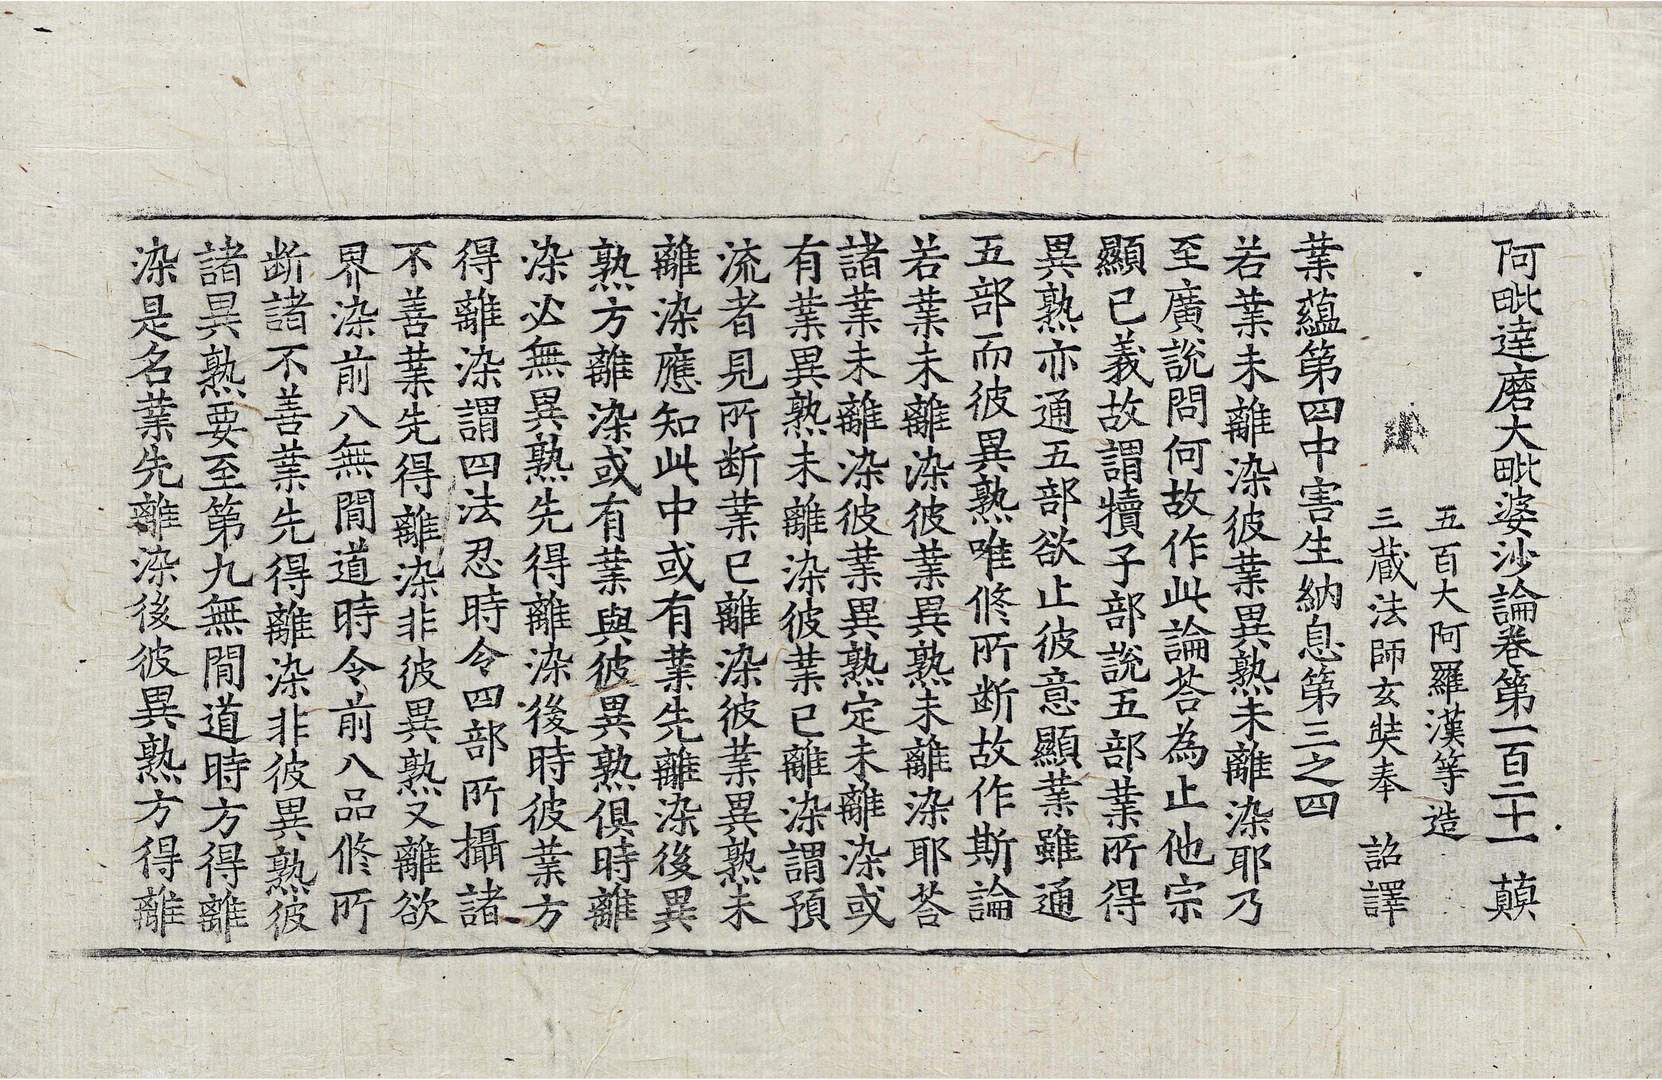 阿毗達磨大毗婆沙論卷第一百二十一　顛
五百大阿羅漢等造
三藏法師玄奘奉　詔譯
業蘊第四中害生納息第三之四
若業未離染彼業異熟未離染耶乃
至廣說問何故作此論荅為止他宗
顯已義故謂犢子部說五部業所得
異熟亦通五部欲止彼意顯業雖通
五部而彼異熟唯脩所断故作斯論
若業未離染彼業異熟未離染耶荅
諸業未離染彼業異熟定未離染或
有業異熟未離染彼業已離染謂預
流者見所断業已離染彼業異熟未
離染應知此中或有業先離染後異
熟方離染或有業與彼異熟俱時離
染必無異熟先得離染後時彼業方
得離染謂四法忍時令四部所攝諸
不善業先得離染非彼異熟又離欲
界染前八無間道時令前八品脩所
断諸不善業先得離染非彼異熟彼
諸異熟要至第九無間道時方得離
染是名業先離染後彼異熟方得離